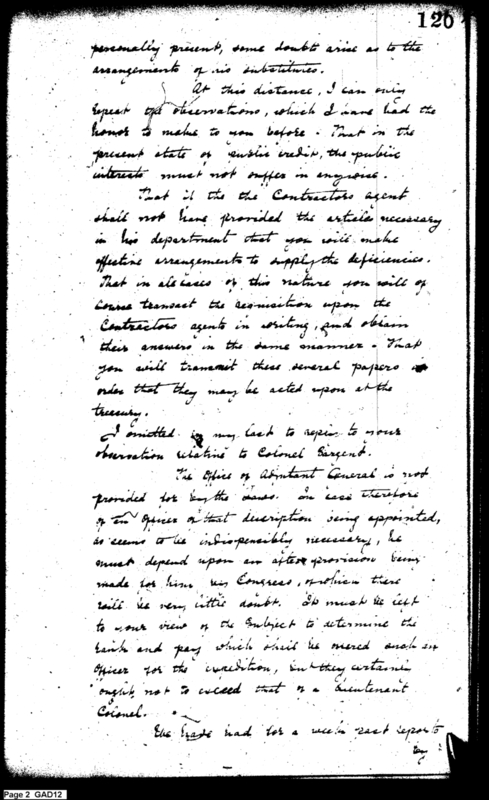 120
personally present, some doubts arise as to the
arrangements of his substitutes.
At this distance, I can only
repeat the observations, which I have had the
honor to make to you before. That in the
present state of public credit, the public
interests must not suffer in anywise.
That if the the Contractors agent
shall not have provided the articles necessary
in his department that you will make
effective arrangements to supply the deficiencies.
That in all cases of this nature you will of
course transact the requisition upon the
Contractors agents in writing, and obtain
their answers in the same manner. That
you will transmit these several papers in
order that they may be acted upon at the
treasury.
I omitted in my last to reply to your
observation relative to Colonel Sargent.
The Office of Adjutant General is not
provided for by the Laws. In case therefore
of an Officer of that description being appointed,
as seems to be indispensibly necessary, he
must depend upon an after provision being
made for him by Congress, of which there
will be very little doubt. It must be left
to your view of the Subject to determine the
rank and pay which shall be offered such an
Officer for the expedition, but they certainly
ought not to exceed that of a Lieutenant
Colonel.
We have had for a week past reports
by
Page 2 GAD12